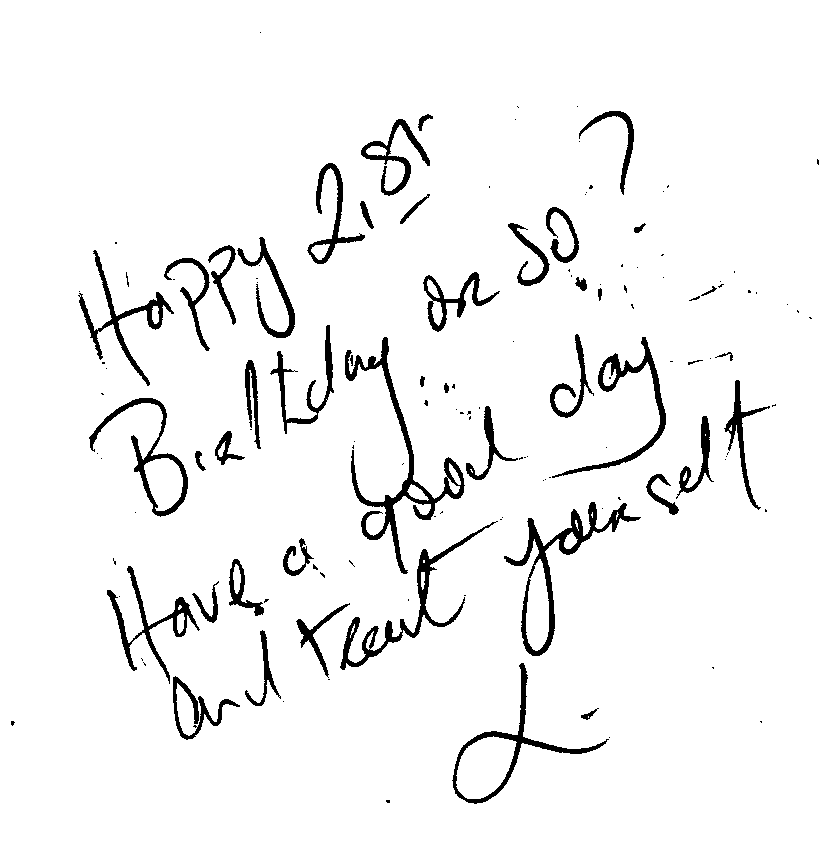 Happy 21st
Birthday or so?
Have a good day
and treat yourself
L.